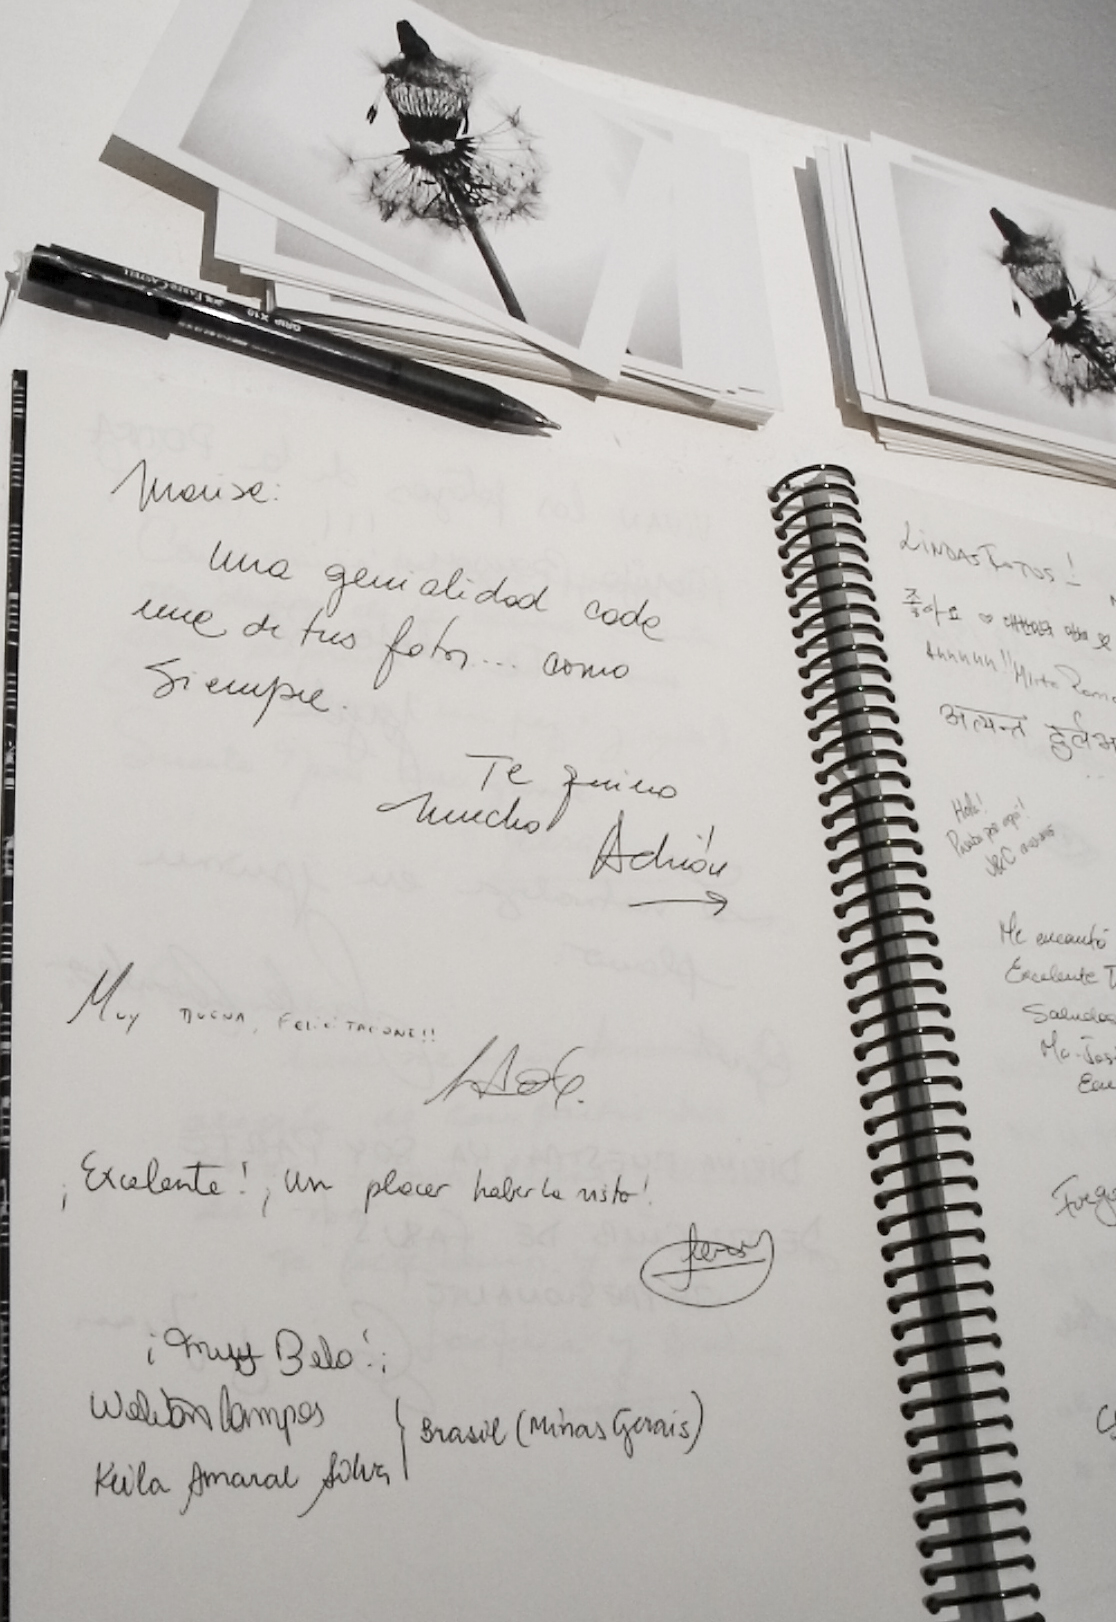 FABER CASTELL
GRIP X10
Marisa:
Una genialidad cada
una de tus fotos... como
Siempre.
Te quiero
mucho Adrián
Muy buena, Felicitaciones!!
¡Excelente! ¡Un placer haberla visto!
¡Muy Belo!¡
Weliton Campos
Keila Amaral Silva
Brasil (Minas Gerais)
LINDAS FOTOS!
좋아요 ♡ 대한민국
Ahhhhh!! Mirta
अत्यन्त दुर्लभ
Hola!
Me encantó
Excelente
Saludos
Ma. José
Fuego